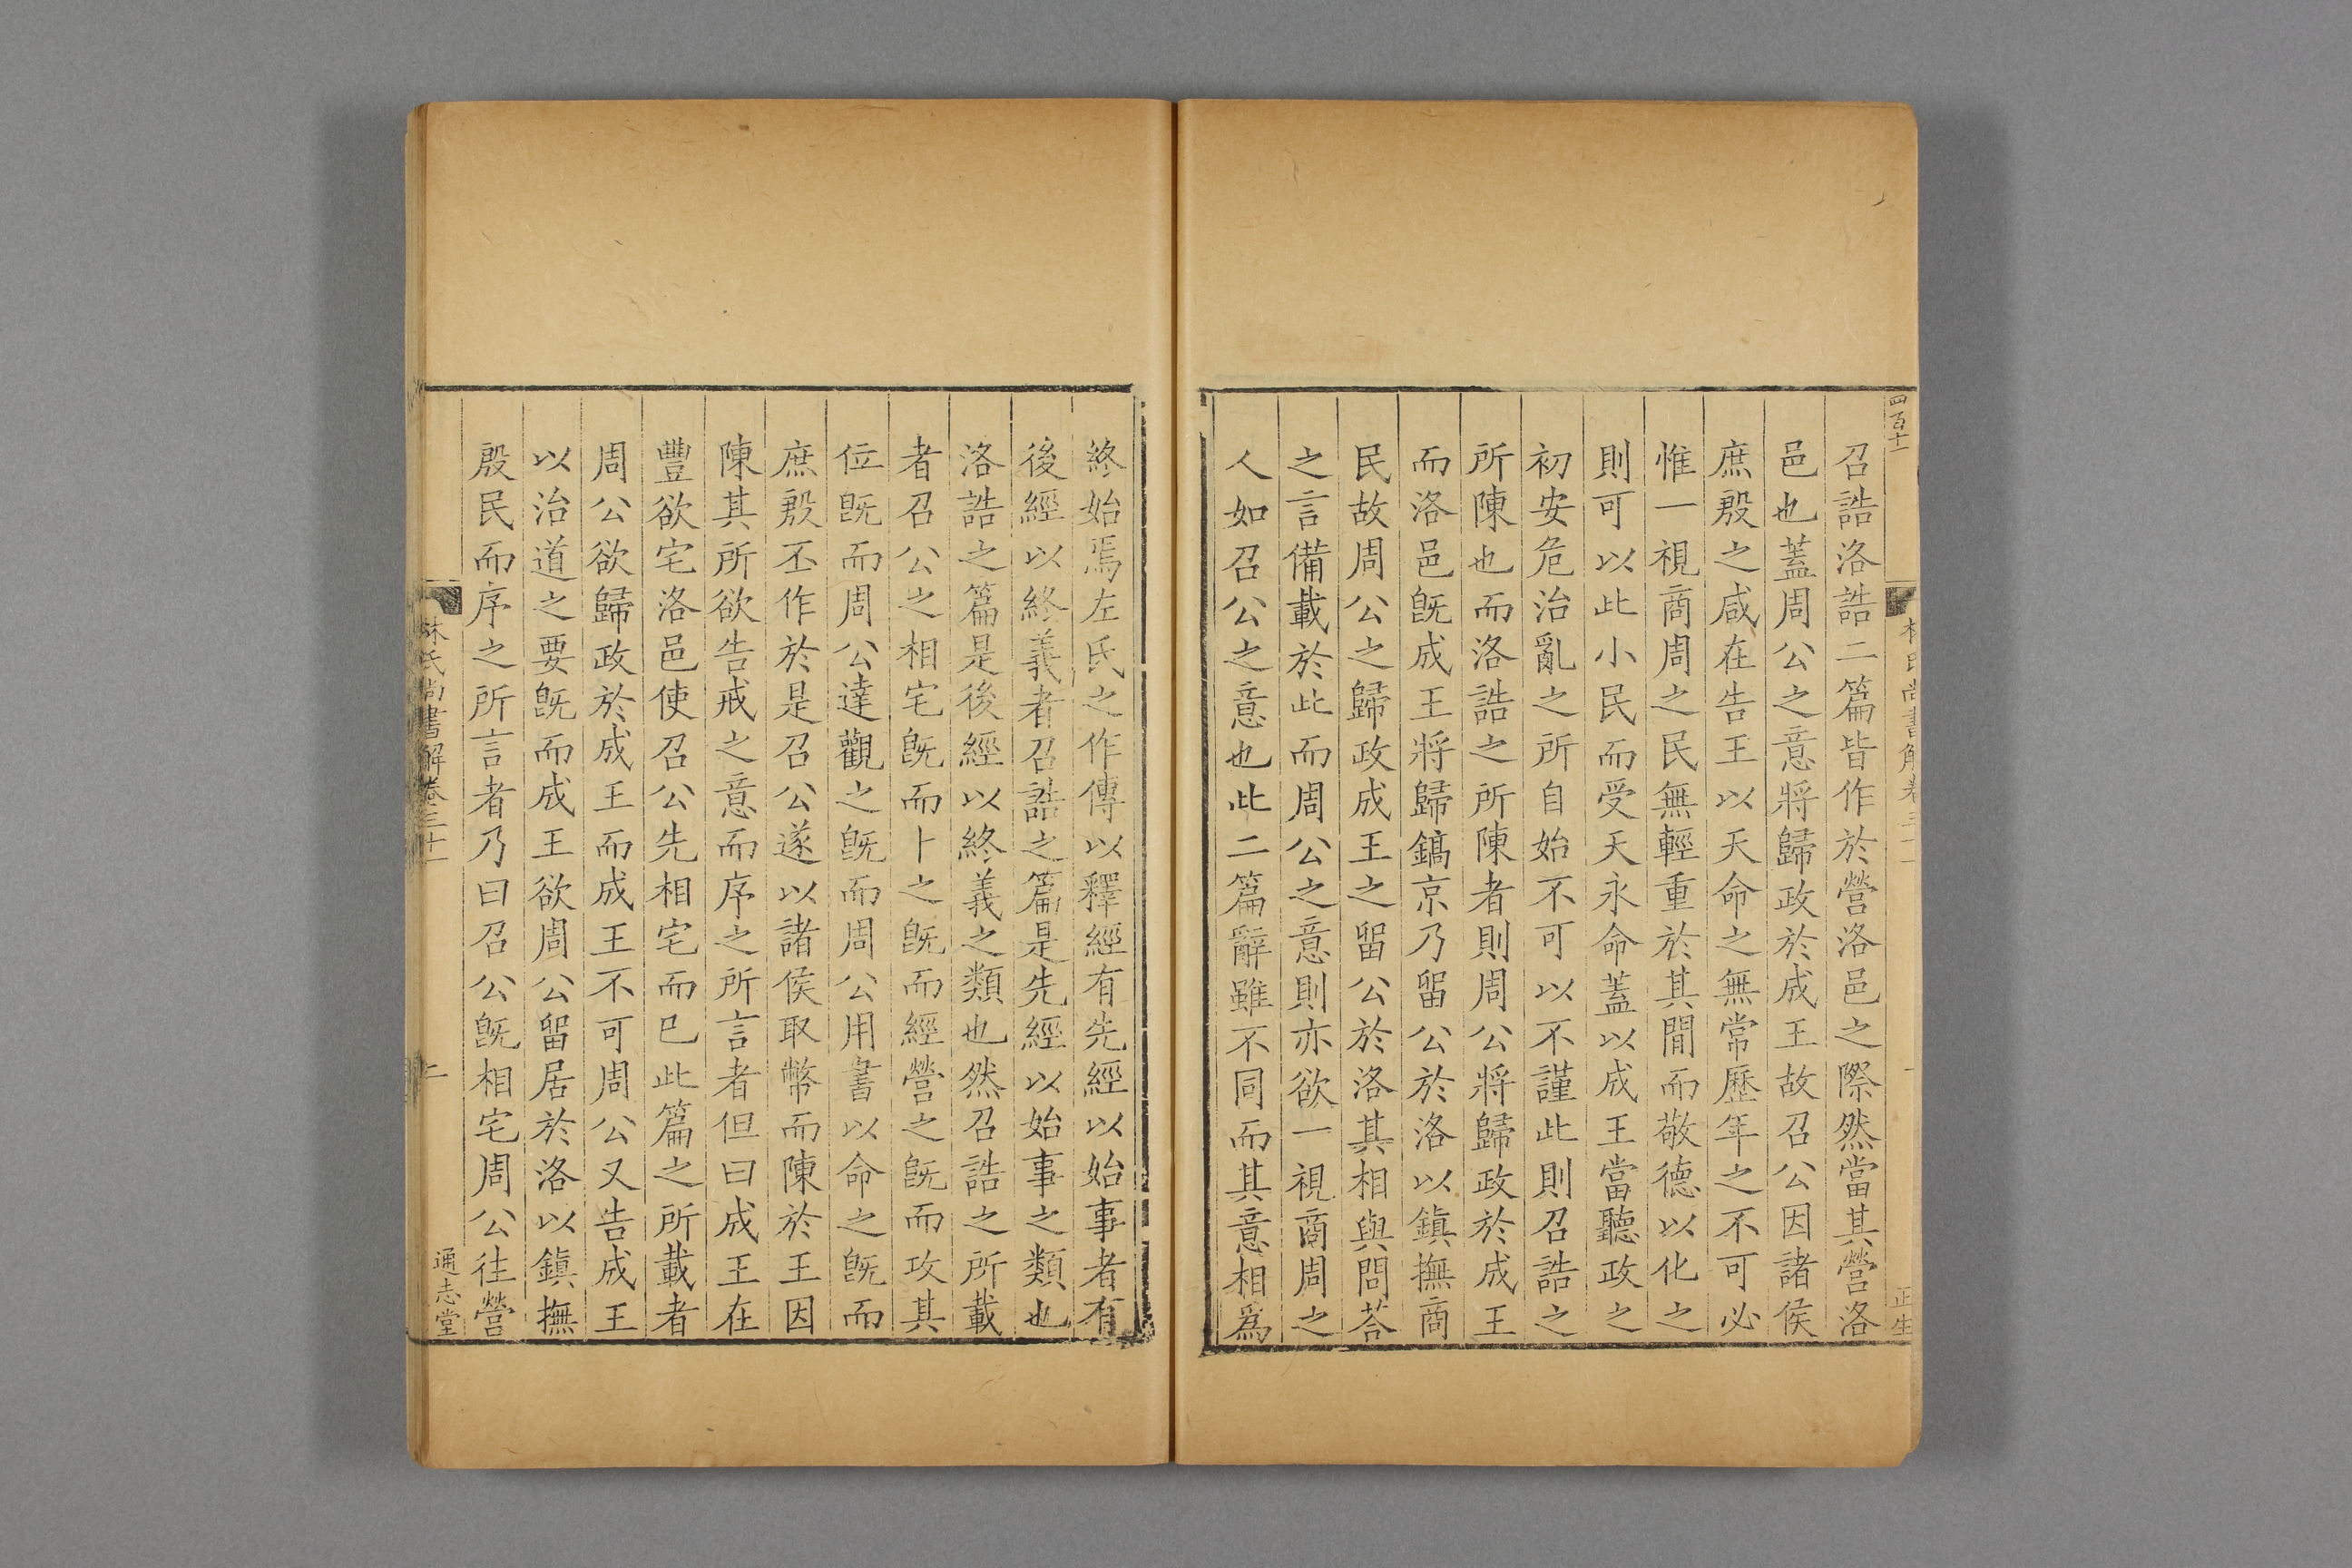 四百十一
召誥洛誥二篇皆作於營洛邑之際然當其營洛
邑也蓋周公之意將歸政於成王故召公因諸侯
庶殷之咸在告王以天命之無常歷年之不可必
惟一視商周之民無輕重於其間而敬德以化之
則可以此小民而受天永命蓋以成王當聽政之
初安危治亂之所自始不可以不謹此則召誥之
所陳也而洛誥之所陳者則周公將歸政於成王
而洛邑旣成王將歸鎬京乃留公於洛以鎮撫商
民故周公之歸政成王之留公於洛其相與問荅
之言備載於此而周公之意則亦欲一視商周之
人如召公之意也此二篇辭雖不同而其意相爲
終始焉左氏之作傳以釋經有先經以始事者有
後經以終義者召誥之篇是先經以始事之類也
洛誥之篇是後經以終義之類也然召誥之所載
者召公之相宅旣而卜之旣而經營之旣而攻其
位旣而周公達觀之旣而周公用書以命之旣而
庶殷丕作於是召公遂以諸侯取幣而陳於王因
陳其所欲告戒之意而序之所言者但曰成王在
豐欲宅洛邑使召公先相宅而巳此篇之所載者
周公欲歸政於成王而成王不可周公又告成王
以治道之要旣而成王欲周公留居於洛以鎮撫
殷民而序之所言者乃曰召公旣相宅周公徃營
林氏尚書解卷三十一
二
通志堂